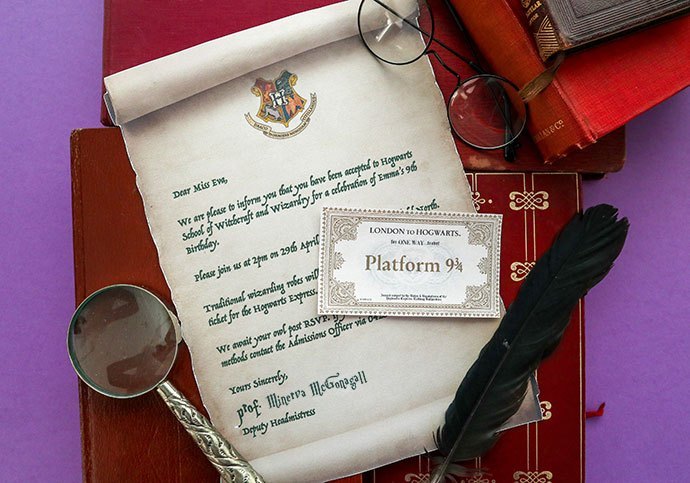 Dear Miss Eva,
We are please to inform you that you have been accepted to Hogwarts
School of Witchcraft and Wizardry for a celebration of Emma's 9th
Birthday.
Please join us at 2pm on 29th April
North.
Traditional wizarding robes will
ticket for the Hogwarts Express.
We await your owl post RSVP.
methods contact the Admissions Officer via
Yours Sincerely,
prof. Minerva McGonagall
Deputy Headmistress
LONDON TO HOGWARTS.
for ONE WAY travel
Platform 9¾